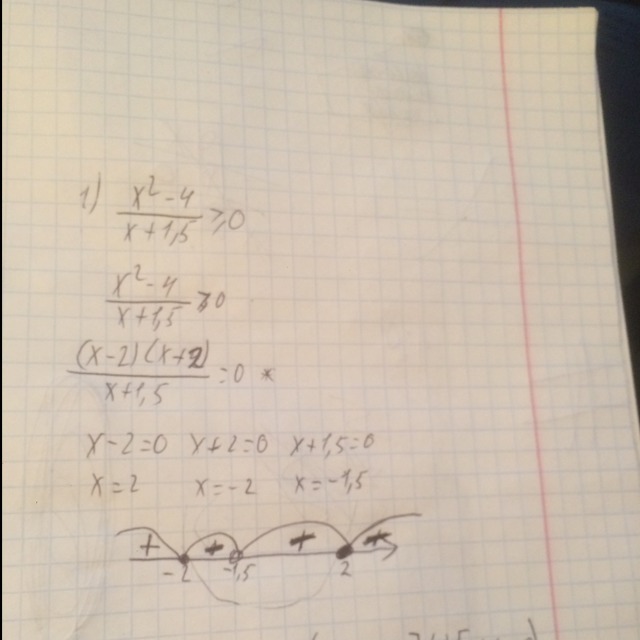 1) (x² - 4)/(x + 1,5) ≥ 0
(x² - 4)/(x + 1,5) ≥ 0
((x - 2)(x + 2))/(x + 1,5) = 0 *
x - 2 = 0 x + 2 = 0 x + 1,5 = 0
x = 2 x = -2 x = -1,5
+ + + +
-2 1,5 2